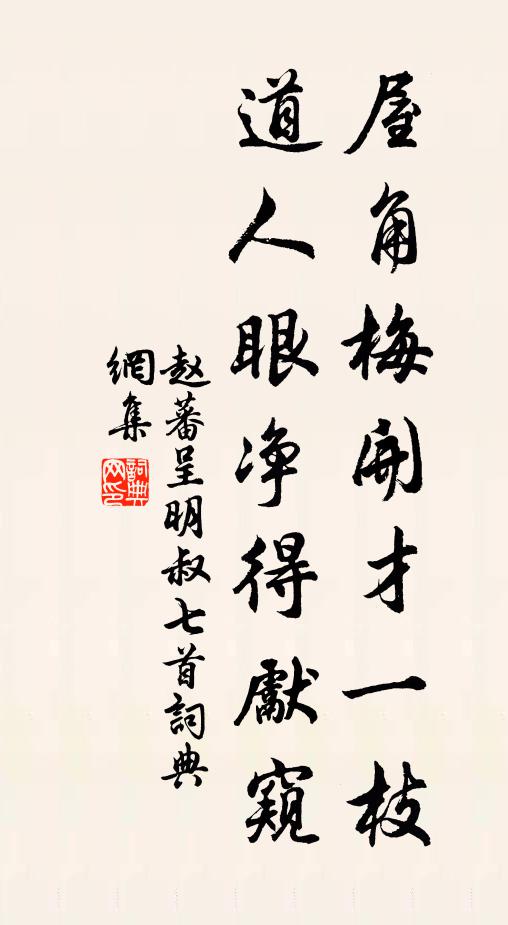 屋角梅開才一枝
道人眼净得獻窺
赵蕃呈明叔七首詞典
網集
詞典
网印